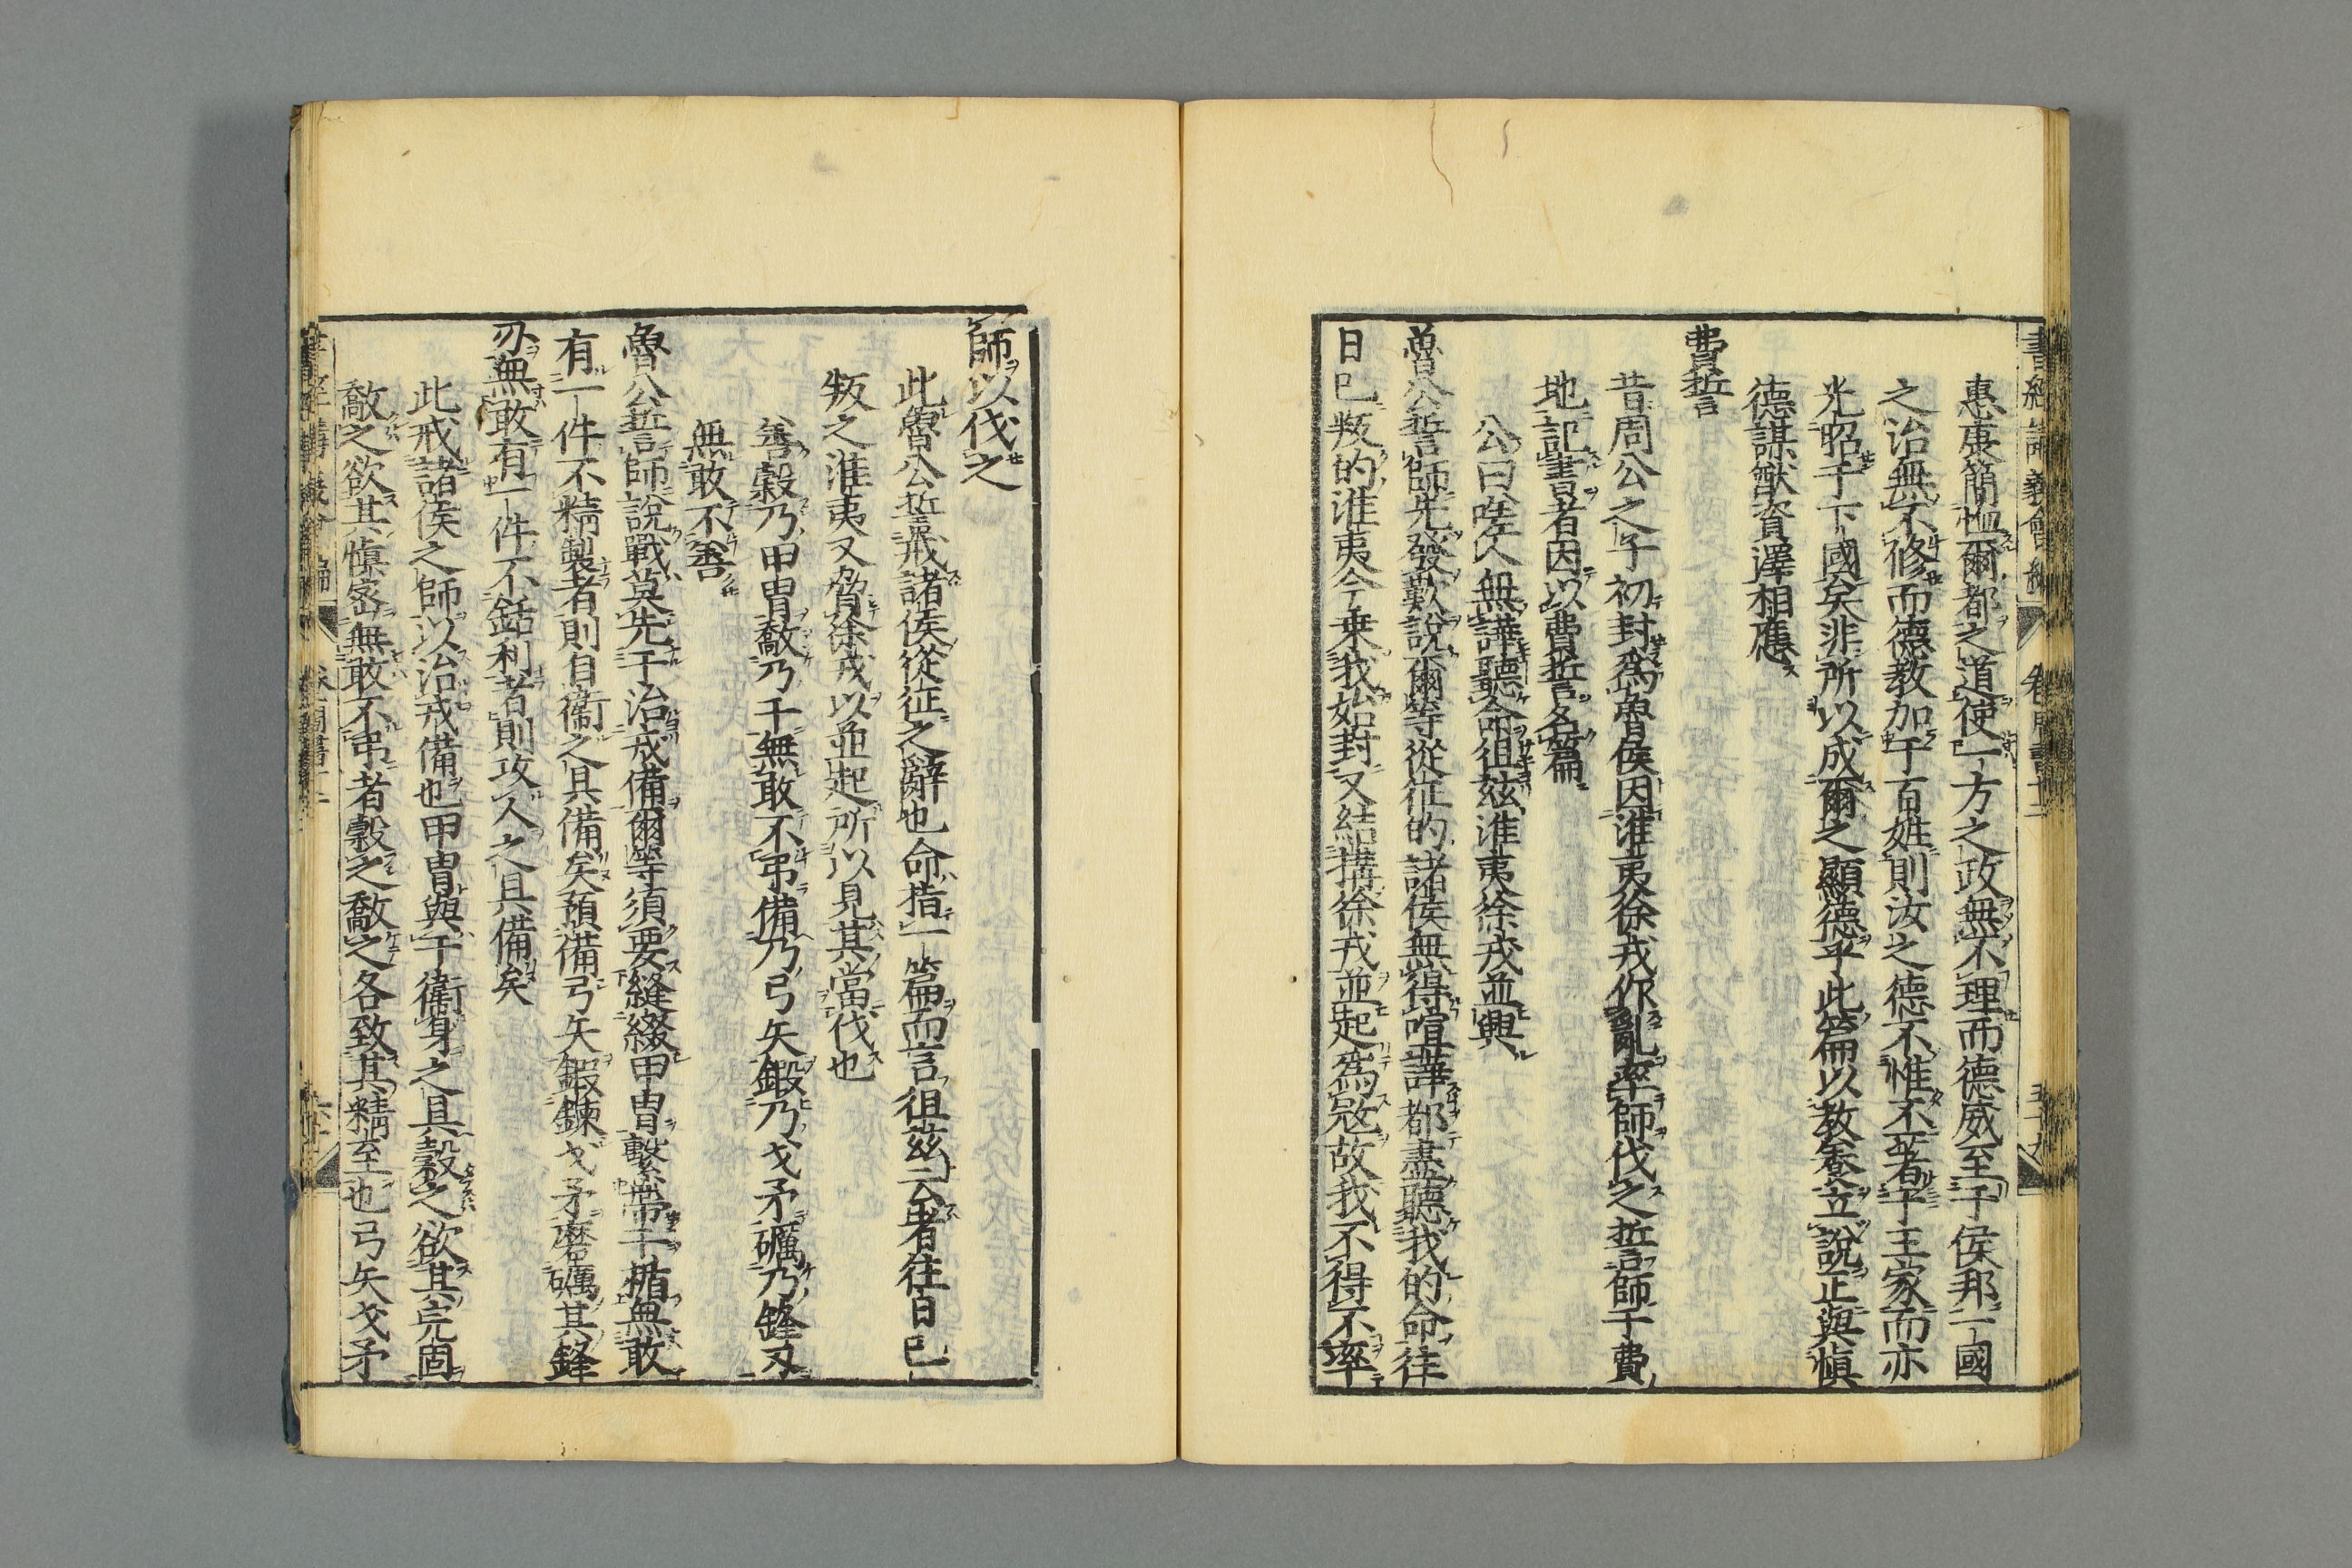 惠康簡恤爾都之道使一方之政無不理而德威至于侯邦一國
之治無不修而德教加于百姓則汝之德不惟不著于王家而亦
光昭于下國矣非所以成爾之顯德乎此篇以教養立説正與愼
德謀猷資澤相應
費誓
昔周公之子初封爲魯侯因淮夷徐戎作亂率師伐之誓師于費
地記書者因以費誓名篇
公曰嗟人無譁聽命徂玆淮夷徐戎並興
魯公誓師先發歎説爾等從征的諸侯無得喧譁都盡聽我的命往
日已叛的淮夷今乗我始封又結搆徐戎並起爲寇故我不得不率
師以伐之
此魯公誓戒諸侯從征之辭也命指一篇而言徂茲云者往日已
叛之淮夷又脅徐戎以並起所以見其當伐也
善敹乃甲冑敿乃干無敢不弔備乃弓矢鍛乃戈矛礪乃鋒刃
無敢不善
魯公誓師説戰莫先于治戎備爾等須要縫綴甲冑繫帶干楯無敢
有一件不精製者則自衞之具備矣預備弓矢鍜鍊戈矛磨礪其鋒
刃無敢有一件不銛利者則攻人之具備矣
此戒諸侯之師以治戎備也甲冑與干衞身之具敹之欲其完固
敿之欲其愼密無敢不弔者敹之敿之各致其精至也弓矢戈矛